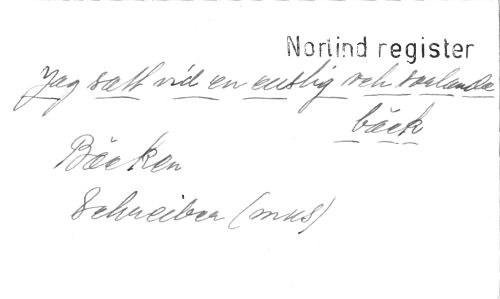 Norlind register
Jag satt vid en enslig och sorlande
bäck
Bäcken
Schreiber (mus)